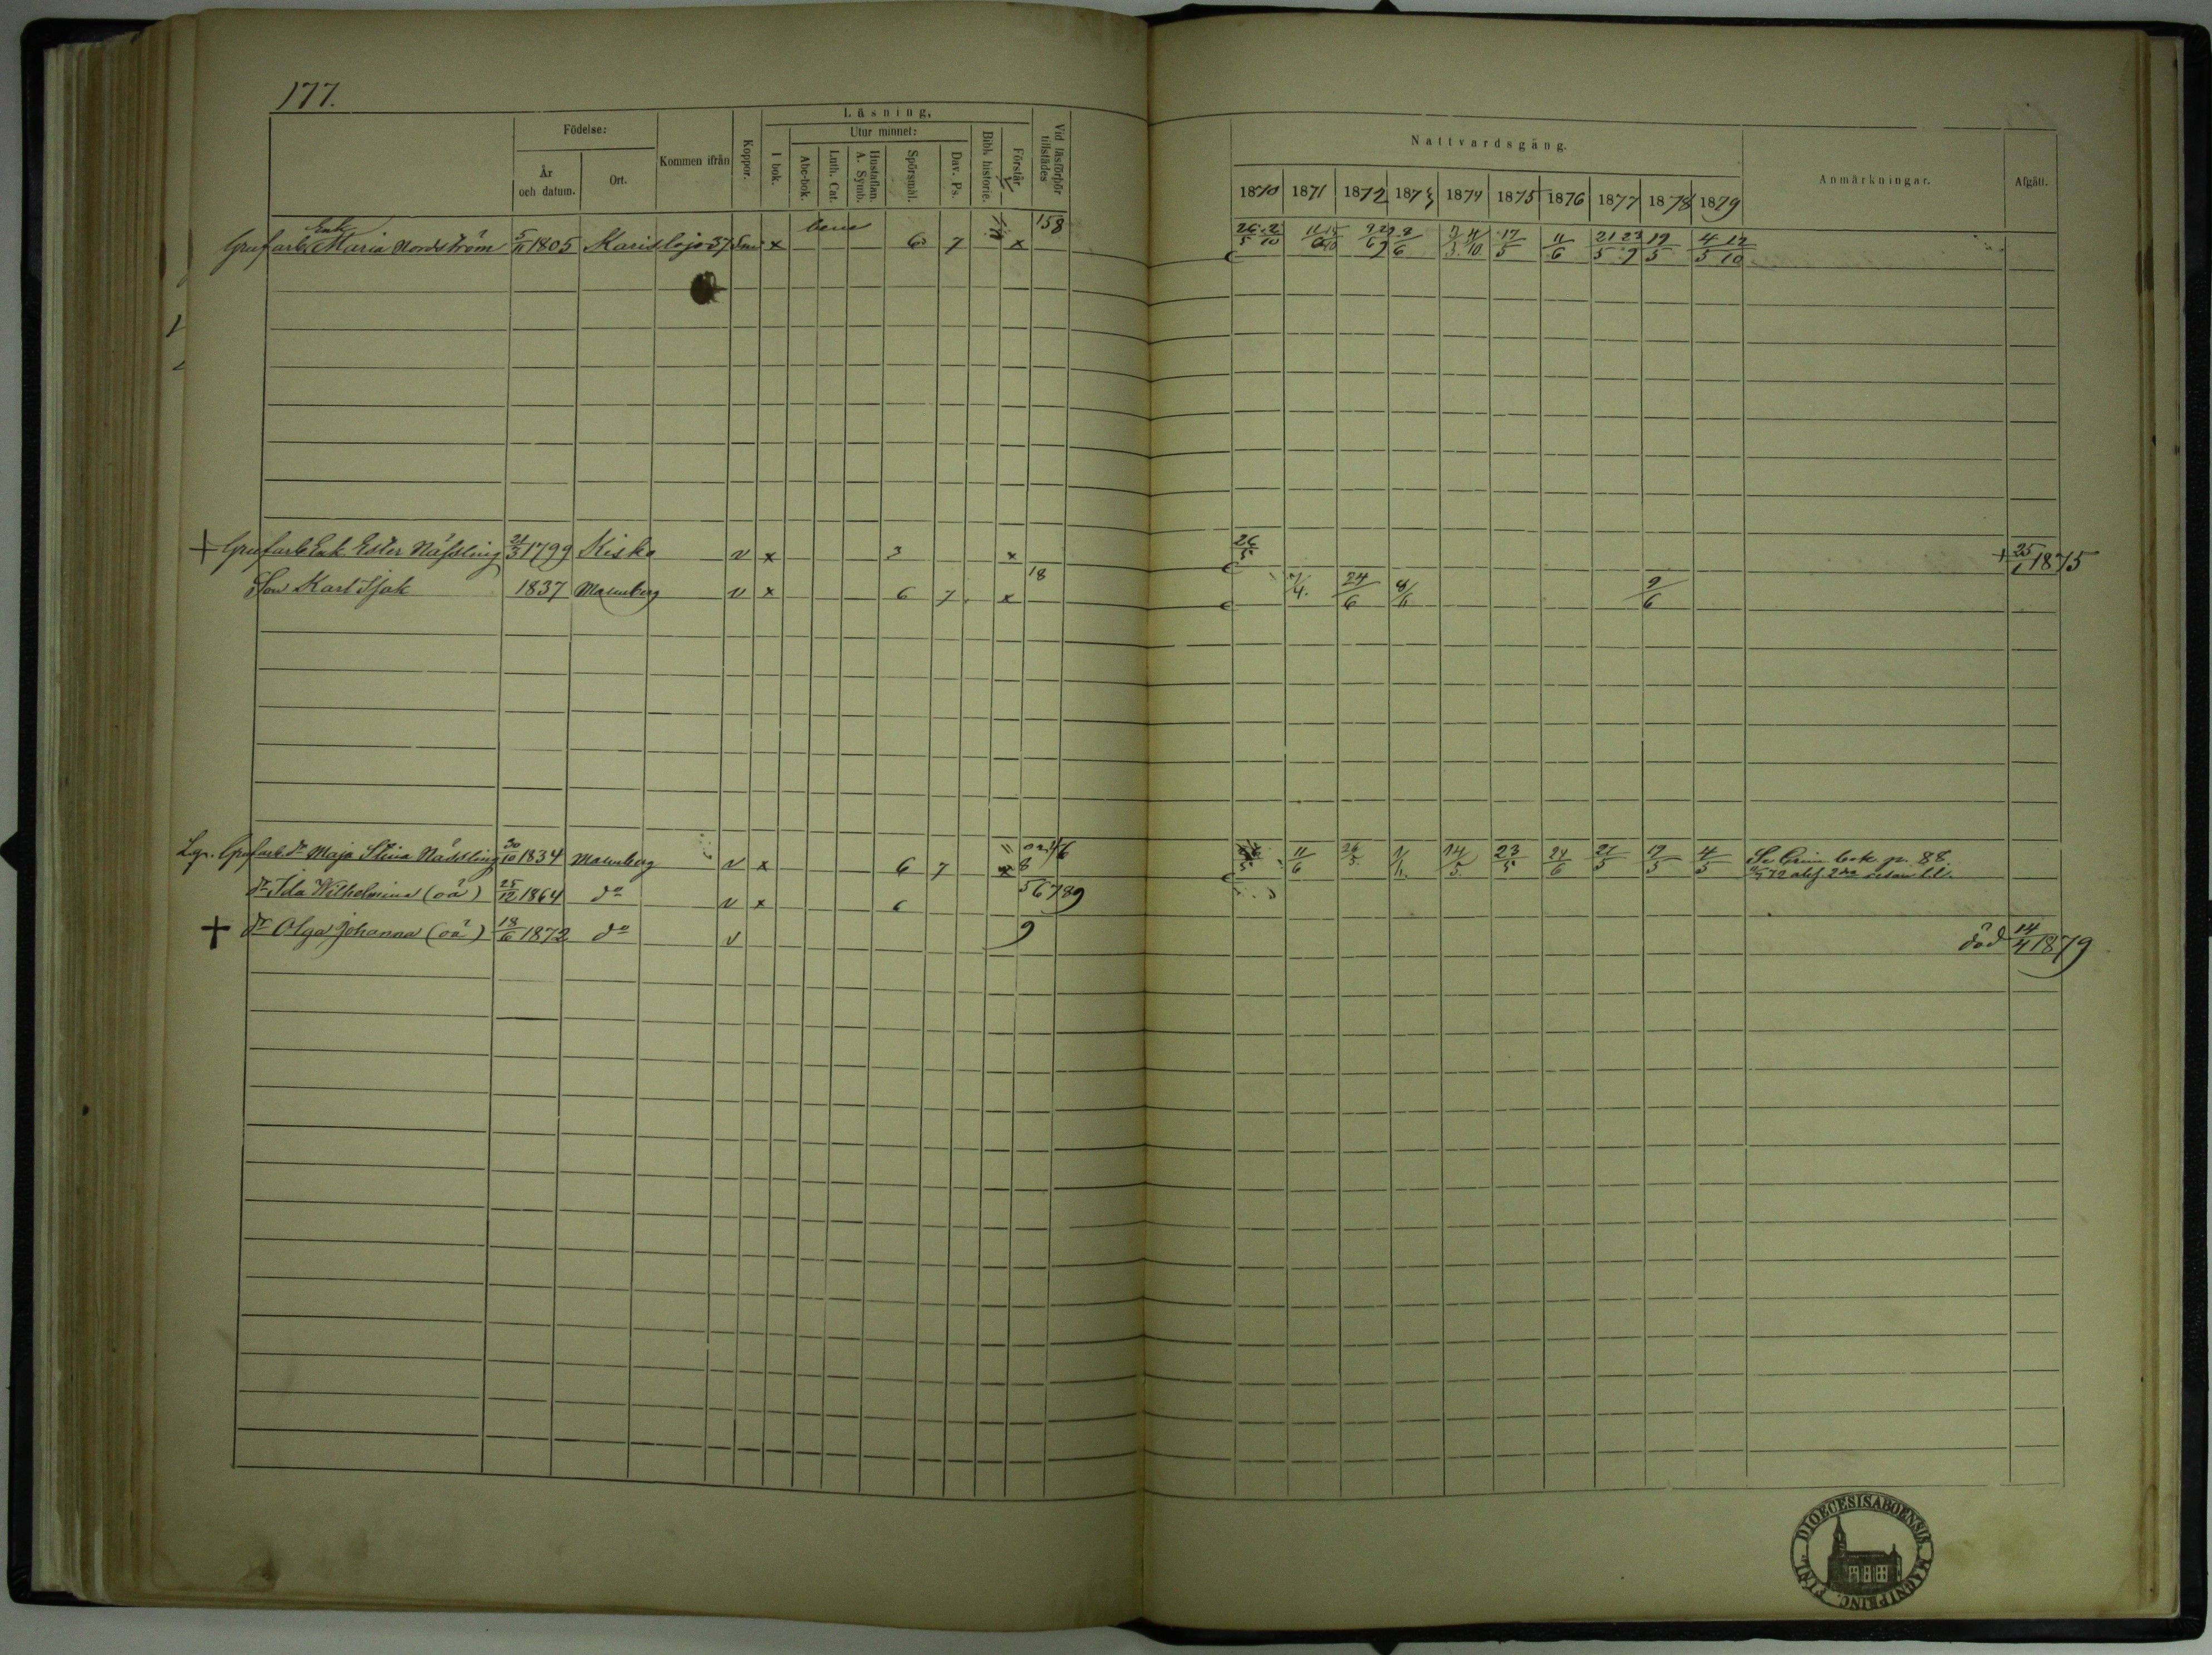 177.
Födelse:
År och datum.
Ort.
Kommen ifrån
Koppor.
Läsning.
I bok.
Utur minnet:
Abc-bok.
Luth. Cat.
Hustaflan. A. Symb.
Spörsmål.
Dav. Ps.
Bibl. historie.
Förstår
Vid läsförhör tillstädes
Nattvardsgång.
1870 1871 1872 1873 1874 1875 1876 1877 1878 1879
Anmärkningar.
Afgått.
Enk
Grufarb. Maria Nordström 5/11 1805 Karislojo 37 x bene 6 7 x 158 26/5 2/10 17/5 11/6 21/5 23/9 19/5 4/5 12/10
+ Grufarb Enk Ester Nässling 21/3 1799 Kisko v x 3 x 26/5 + 25/1 1875
Son Karl Isak 1837 Malmberg v x 6 7 x 18 24/6 9/6
Grufarb. dr Maja Stina Nässling 30/10 1834 Malmberg v x 6 7 11/6 26/5 14/5 23/5 24/6 27/5 19/5 4/5 Se Crim bok p. 88.
dr Ida Wilhelmina (oä) 25/12 1864 do v x 6 56789
+ dr Olga Johanna (oä) 18/6 1872 do v 9 död 14/4 1879
DIOECESIS ABOENSIS. MAGNI PRINC. FINL.